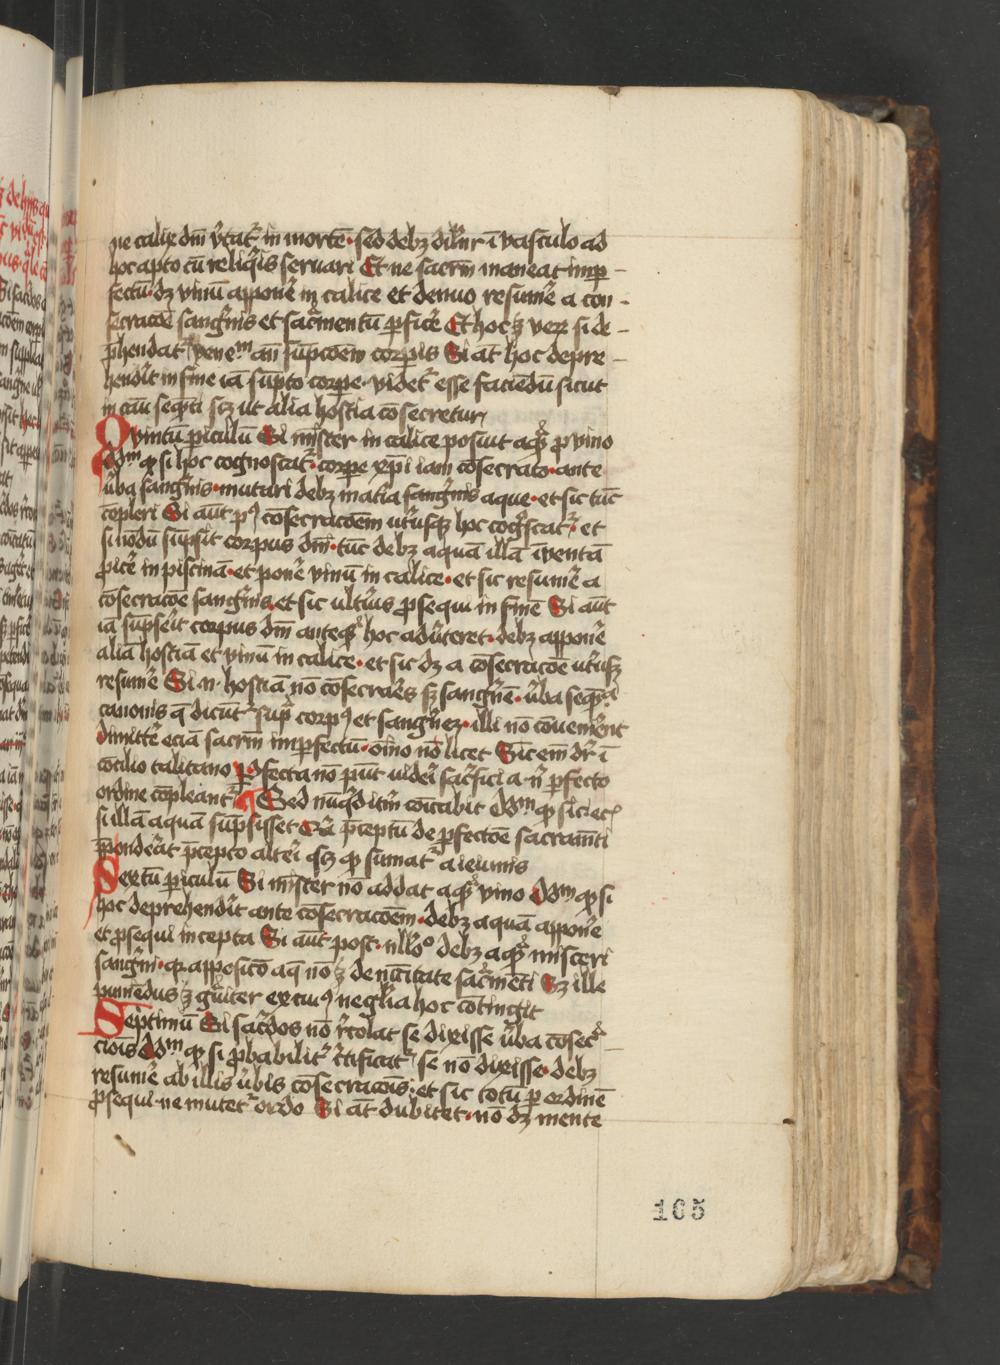 ne calix dm̄ v̓tat᷑ in mortē. sed debꝫ dil̓nr ī vasculo ad
hoc apto cū reliq̓is seruari Et ne sacrm̄ maneat imp̱
fectū. dꝫ vinū appoñe in calice et denuo resum̓e a con
secracōe sang̓nis et sac̓mentū p̱fic̓e Et hoc ꝫ veꝝ si de
p̄hendat᷑ veneᵐ an̄ sūpcōem corpis Si at̄ hoc depre
hend̓it in fine iā sūpto corpe. videt᷑ esse faciēdū sicut
in cāu seq̄nti scꝫ ut alia hostia cōsecretur
Quintū piculū Si mīster in calice posuit aq̄ꝫ pro vino
Ddᵐ ꝙ si hoc cognoscat᷑. corpe xp̄i iam cōsecrato. ante
v̓ba sang̓nis. mutari debꝫ mat̓ia sang̓nis aque. et sic tūc
cōpleri Si aūt pꝰ cōsecracōem ut̓usqꝫ hoc cog̓scat᷑. et
si nōdū sūpsit corpus dn̄i. tūc debꝫ aquā illā īventā
ꝓic̓e in piscinā. et pon̓e vinū in calice. et sic resum̓e a
cōsecracōe sang̓nis. et sic ult̓ius ꝓsequi in finē Si aūt
iā sūps̓it corpus dn̄i anteqꝫ hoc adu̓teret. debꝫ appon̓e
aliā hostiā et vinū in calice. et sic dꝫ a cōsecracōe ut̓usqꝫ
resum̓e Si .n. hostiā nō cōsecraret sꝫ sang̓nē. v̓ba seq̄ncia
canonis q̄ dicūt᷑ sup̱ corpꝰ et sang̓nez. illi nō cōvenirent
dimitt̓e eciā sacrm̄ imp̱fectū. oīno nō licet Sic em̄ dr̄ ī
cōcilio talitano p̱fecta nō pn̄t videri sac̓ficia. nī p̱fecto
ordine cōpleant᷑ ¶ Sed nūq̓d it̓m cōn̄cabit Ddᵐ ꝙ sic. etᷤ
si illā aquā sūpsisset Qꝛ p̄ceptū de p̱fectōe sacramn̄ti
p̄pond̓at p̄cepto alt̓i scꝫ ꝙ sumat᷑ a ieiunis
Sextū piculū Si mīster nō addat aq̄ꝫ vino Ddᵐ ꝙ si
hoc deprehend̓it ante cōsecracōem. debꝫ aquā appon̓e
et ꝓsequi incepta Si aūt post. nll̓oᵒ debꝫ aq̄ꝫ misceri
sang̓ni. qꝛ apposicō aq̄ nō ꝫ de nc̄citate sac̓mēti Sꝫ ille
puniēdus ꝫ g̓uiter ex cuiꝰ neglīa hoc cōtingit
Septimū Si sac̓dos nō r̓colat se dixisse v̓ba cōsec̓
cīois Ddᵐ ꝙ si ꝓbabilit᷑ c̓tificat᷑ se nō dixisse. debꝫ
resum̓e ab illis v̓bis cōsecracōis. et sic totū p̱ ordinē
ꝓsequi. ne mutet᷑ ordo Si at̄ dubitet. nō dꝫ mente
165